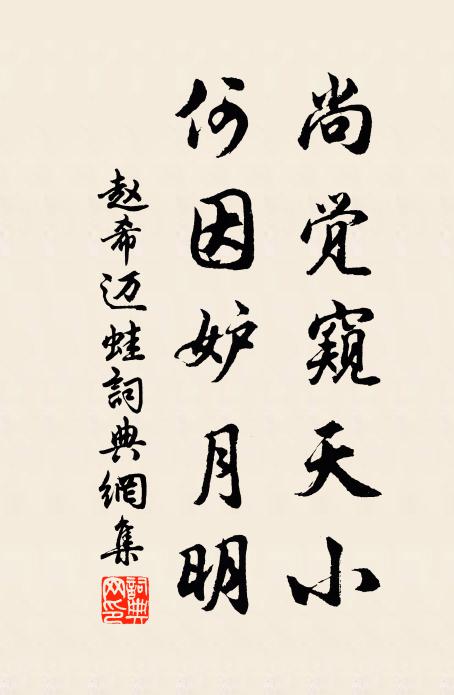 尚觉窥天小
何因妒月明
赵希迈蛙詞典網集
詞典网印